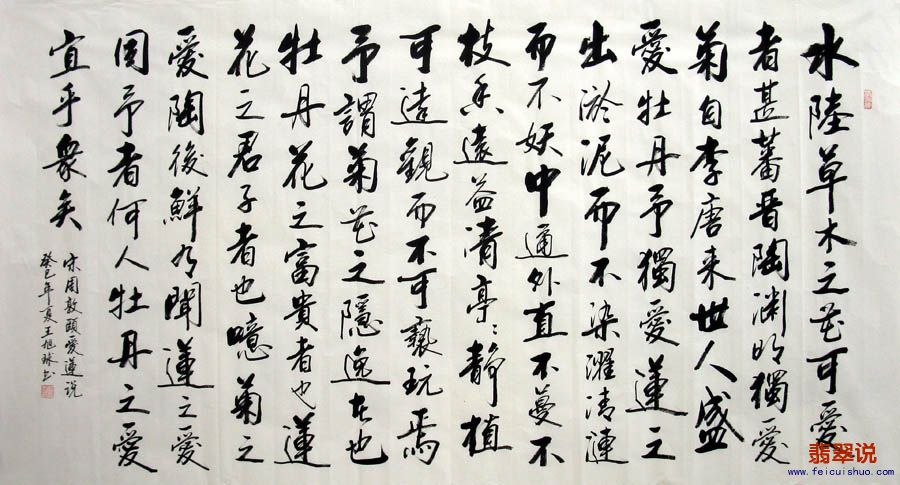 水陸草木之花可愛
者甚蕃晉陶淵明獨愛
菊自李唐来世人盛
愛牡丹予獨愛蓮之
出淤泥而不染濯清漣
而不妖中通外直不蔓不
枝香遠益清亭〻静植
可遠觀而不可褻玩焉
予謂菊花之隱逸者也
牡丹花之富貴者也蓮
花之君子者也噫菊之
愛陶後鮮有聞蓮之愛
同予者何人牡丹之愛
宜乎衆矣
宋周敦頤愛蓮说
癸巳年夏王旭球书
翡翠说
www.feicuishuo.com